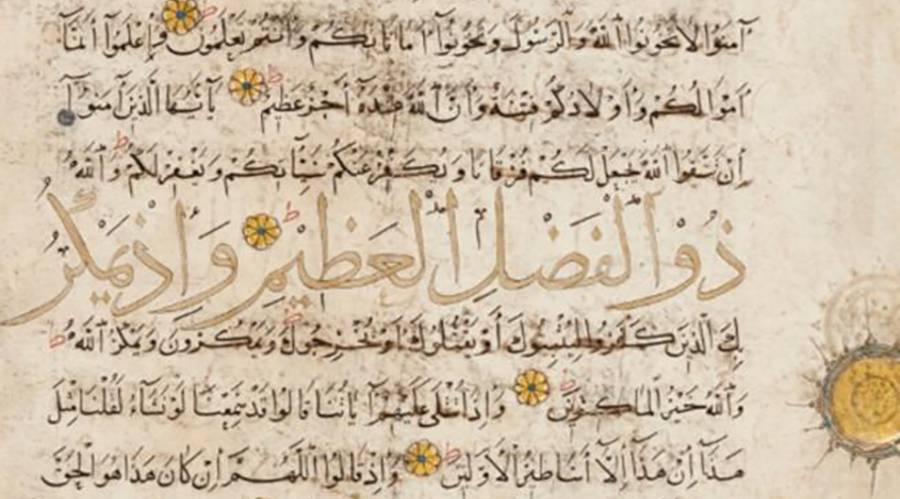 آمَنُوا لَا تَخُونُوا اللَّهَ وَالرَّسُولَ وَتَخُونُوا أَمَانَاتِكُمْ وَأَنْتُمْ تَعْلَمُونَ وَاعْلَمُوا أَنَّمَا
أَمْوَالُكُمْ وَأَوْلَادُكُمْ فِتْنَةٌ وَأَنَّ اللَّهَ عِنْدَهُ أَجْرٌ عَظِيمٌ يَا أَيُّهَا الَّذِينَ آمَنُوا
إِنْ تَتَّقُوا اللَّهَ يَجْعَلْ لَكُمْ فُرْقَانًا وَيُكَفِّرْ عَنْكُمْ سَيِّئَاتِكُمْ وَيَغْفِرْ لَكُمْ وَاللَّهُ
ذُو الْفَضْلِ الْعَظِيمِ وَإِذْ يَمْكُرُ
بِكَ الَّذِينَ كَفَرُوا لِيُثْبِتُوكَ أَوْ يَقْتُلُوكَ أَوْ يُخْرِجُوكَ وَيَمْكُرُونَ وَيَمْكُرُ اللَّهُ
وَاللَّهُ خَيْرُ الْمَاكِرِينَ وَإِذَا تُتْلَى عَلَيْهِمْ آيَاتُنَا قَالُوا قَدْ سَمِعْنَا لَوْ نَشَاءُ لَقُلْنَا مِثْلَ
هَذَا إِنْ هَذَا إِلَّا أَسَاطِيرُ الْأَوَّلِينَ وَإِذْ قَالُوا اللَّهُمَّ إِنْ كَانَ هَذَا هُوَ الْحَقَّ